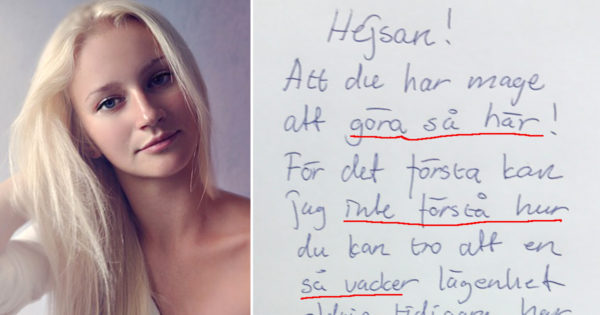 Hejsan!
Att du har mage
att göra så här!
För det första kan
jag inte förstå hur
du kan tro att en
så vacker lägenhet
aldrig tidigare har